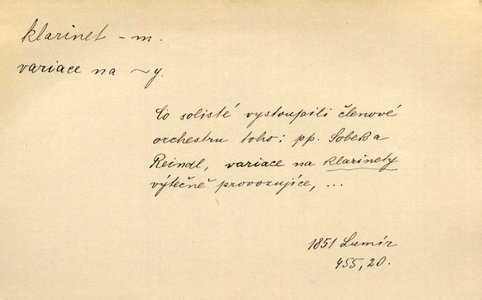 klarinet – m.
variace na ~y.
Co solisté vystoupili členové
orchestru toho: pp. Sobek a
Reindl, variace na klarinety
výtečně provozujíce, ...
1851 Lumír
455,20.